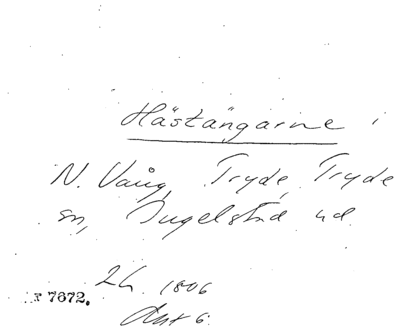 Hästängarne i
N. Vång, Tryde, Tryde
sn, Ingelstad hd
24. 1806
Akt 6.
F 7672.